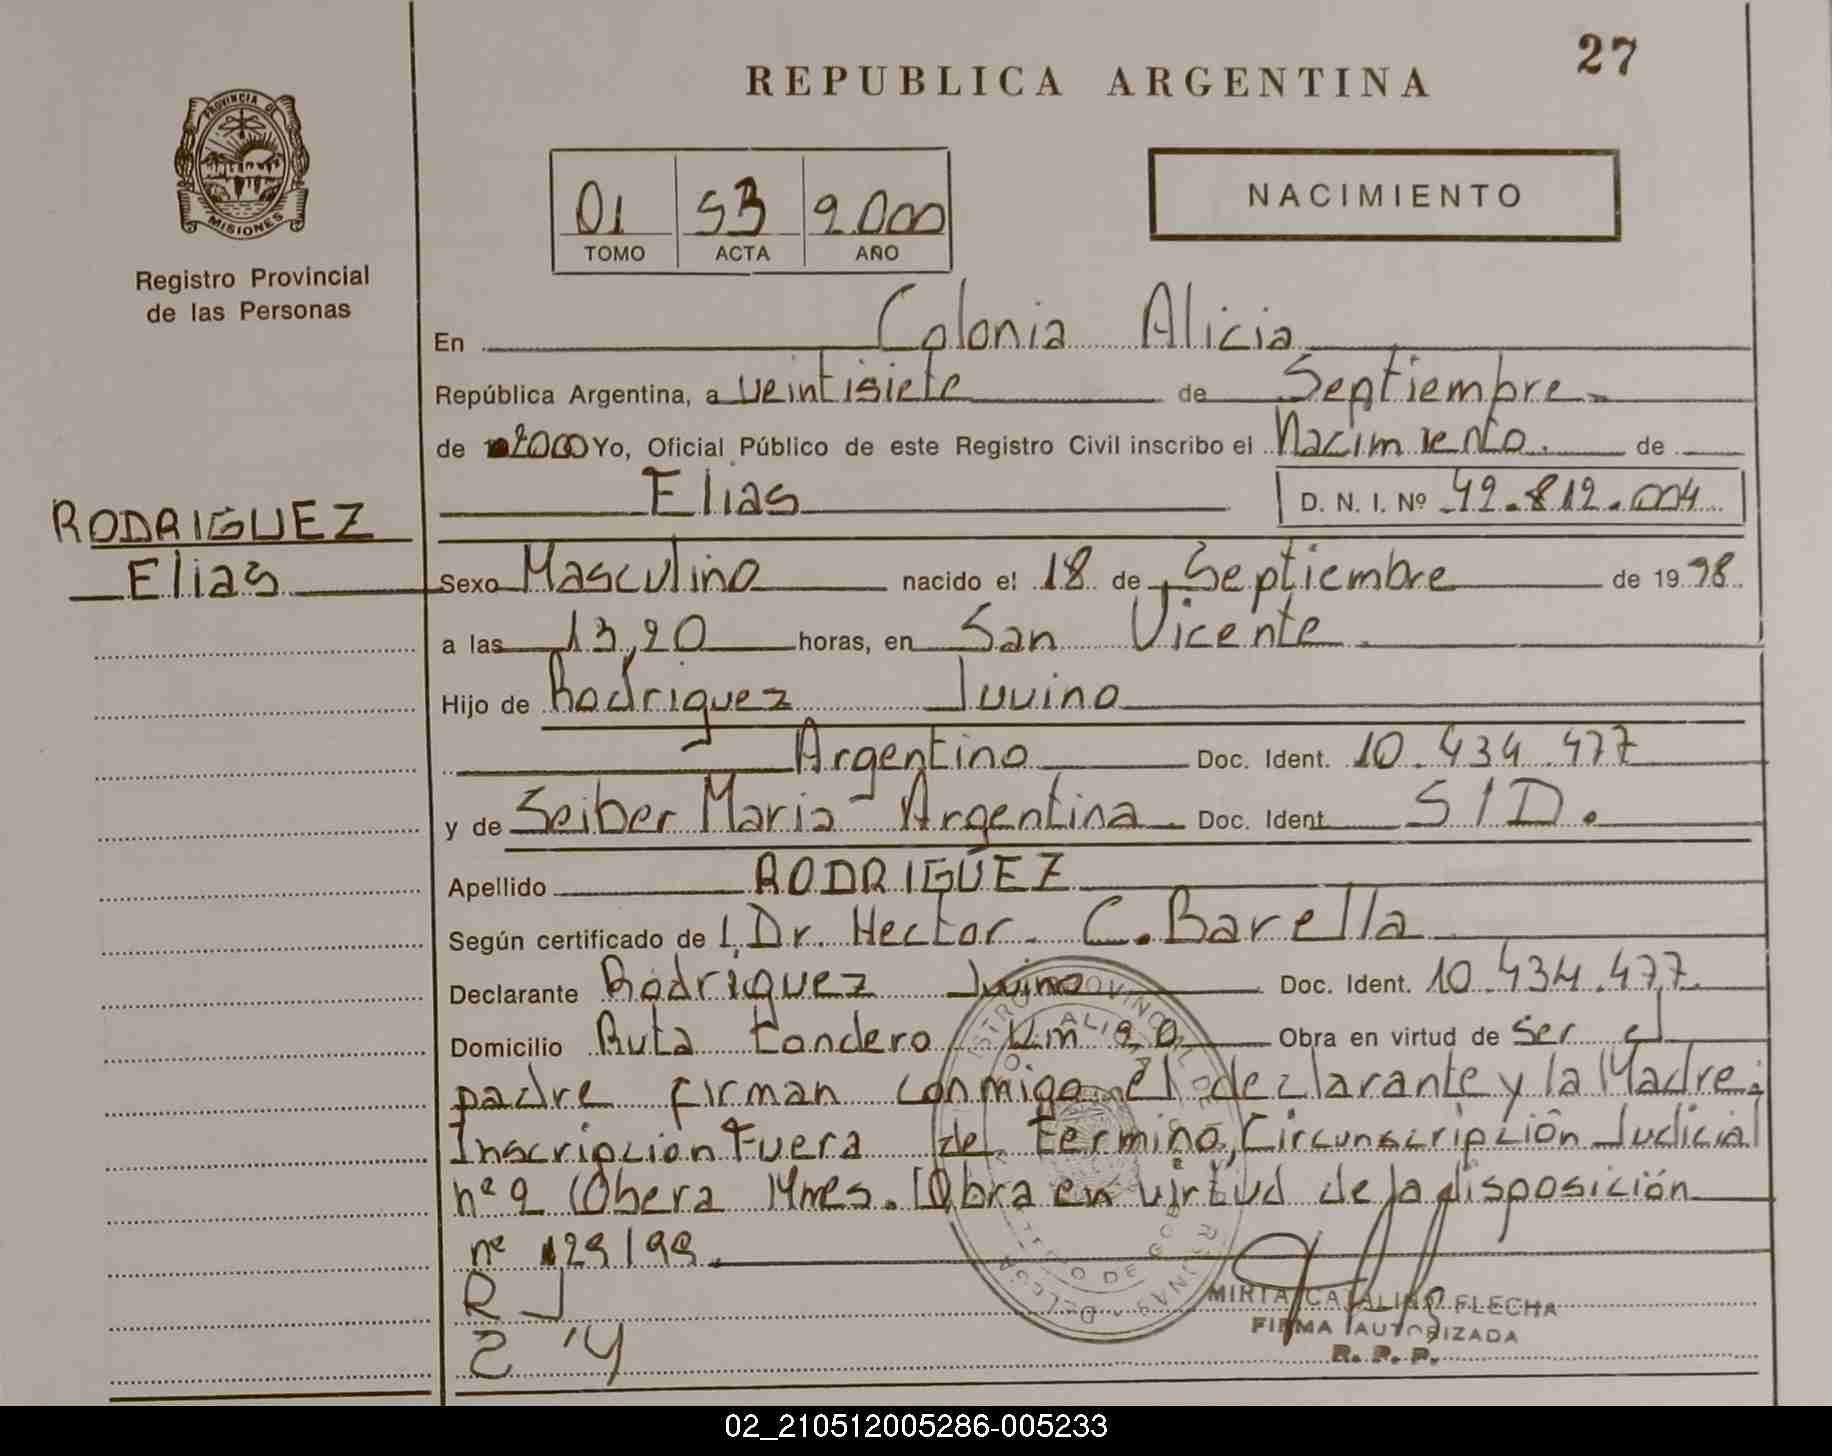 27
REPUBLICA ARGENTINA
PROVINCIA DE
MISIONES
Registro Provincial
de las Personas
01 53 2.000
TOMO ACTA AÑO
NACIMIENTO
En Colonia Alicia
República Argentina, a veintisiete de Septiembre
de 2000 Yo, Oficial Público de este Registro Civil inscribo el Nacimiento. de
Elias D. N. I. Nº 42.812.004
RODRIGUEZ
Elias
Sexo Masculino nacido el 18 de Septiembre de 1998
a las 13,20 horas, en San Vicente
Hijo de Rodriguez Juvino
Argentino Doc. Ident. 10.434.477
y de Seiber Maria - Argentina Doc. Ident. S/D.
Apellido RODRIGUEZ
Según certificado de Dr. Hector C. Barella
Declarante Rodriguez Juvino Doc. Ident. 10.434.477
Domicilio Ruta Km 20 Obra en virtud de ser el
padre firman conmigo el declarante y la Madre:
Inscripcion Fuera de termino, Circunscripción Judicial
nº 2 (Obera Mnes. Obra en virtud de la disposición
nº 129/99.
R J
MIRTA CATALINO FLECHA
FIRMA AUTORIZADA
R. P. P.
02_210512005286-005233